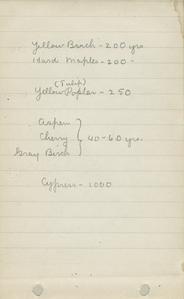 Yellow Birch - 200 yrs.
Hard Maples - 200 -
(Tulip)
Yellow Poplar - 250
Aspen
Cherry } 40-60 yrs.
Gray Birch
Cypress - 1000